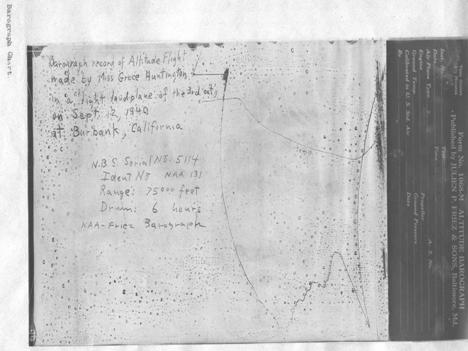 Barograph Chart.
Barograph record of Altitude Flight
made by Miss Grace Huntington
in a light landplane of the 3rd cat,
on Sept. 12, 1940
at Burbank, California
N.B.S Serial No. 5114
Ident No NAA 131
Range: 75000 feet
Drum: 6 hours
NAA-Friez Barograph
Form No. 1068-M ALTITUDE BAROGRAPH
Published by JULIEN P. FRIEZ & SONS, Baltimore, Md.
Propeller
Ground Pressure
Date
Air Plane Type
Engine
Ground Temp.
By